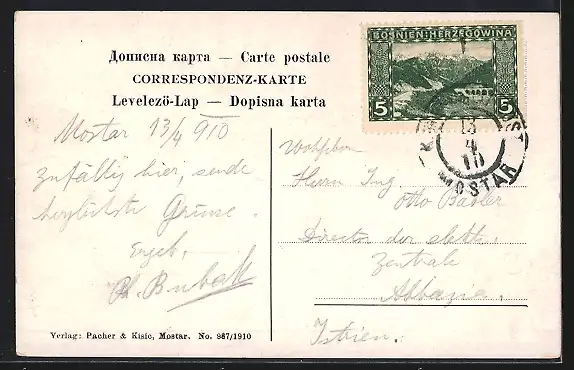 Дописна карта — Carte postale
CORRESPONDENZ-KARTE
Levelező-Lap — Dopisna karta
BOSNIEN-HERZEGOWINA
5 5
13
4
10
MOSTAR
Mostar 13/4 910
Zufällig hier, sende
herzlichste Grüsse.
Ergeb.
Herrn Ing
Otto
Director der elektr.
Zentrale
Abbazia,
Istrien.
Verlag: Pacher & Kisic, Mostar. No. 987/1910